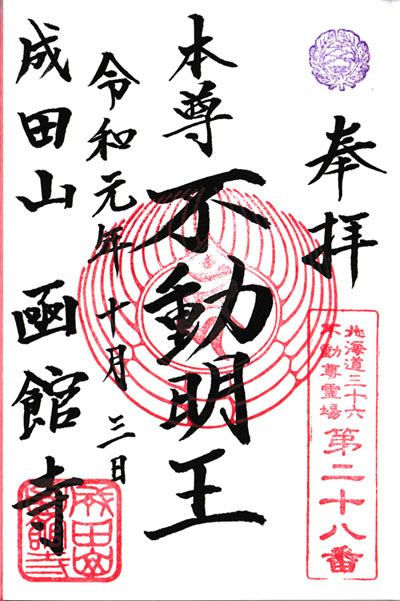 奉拝
北海道三十六
不動尊霊場
第二十八番
本尊 不動明王
令和元年十月三日
成田山 函館寺